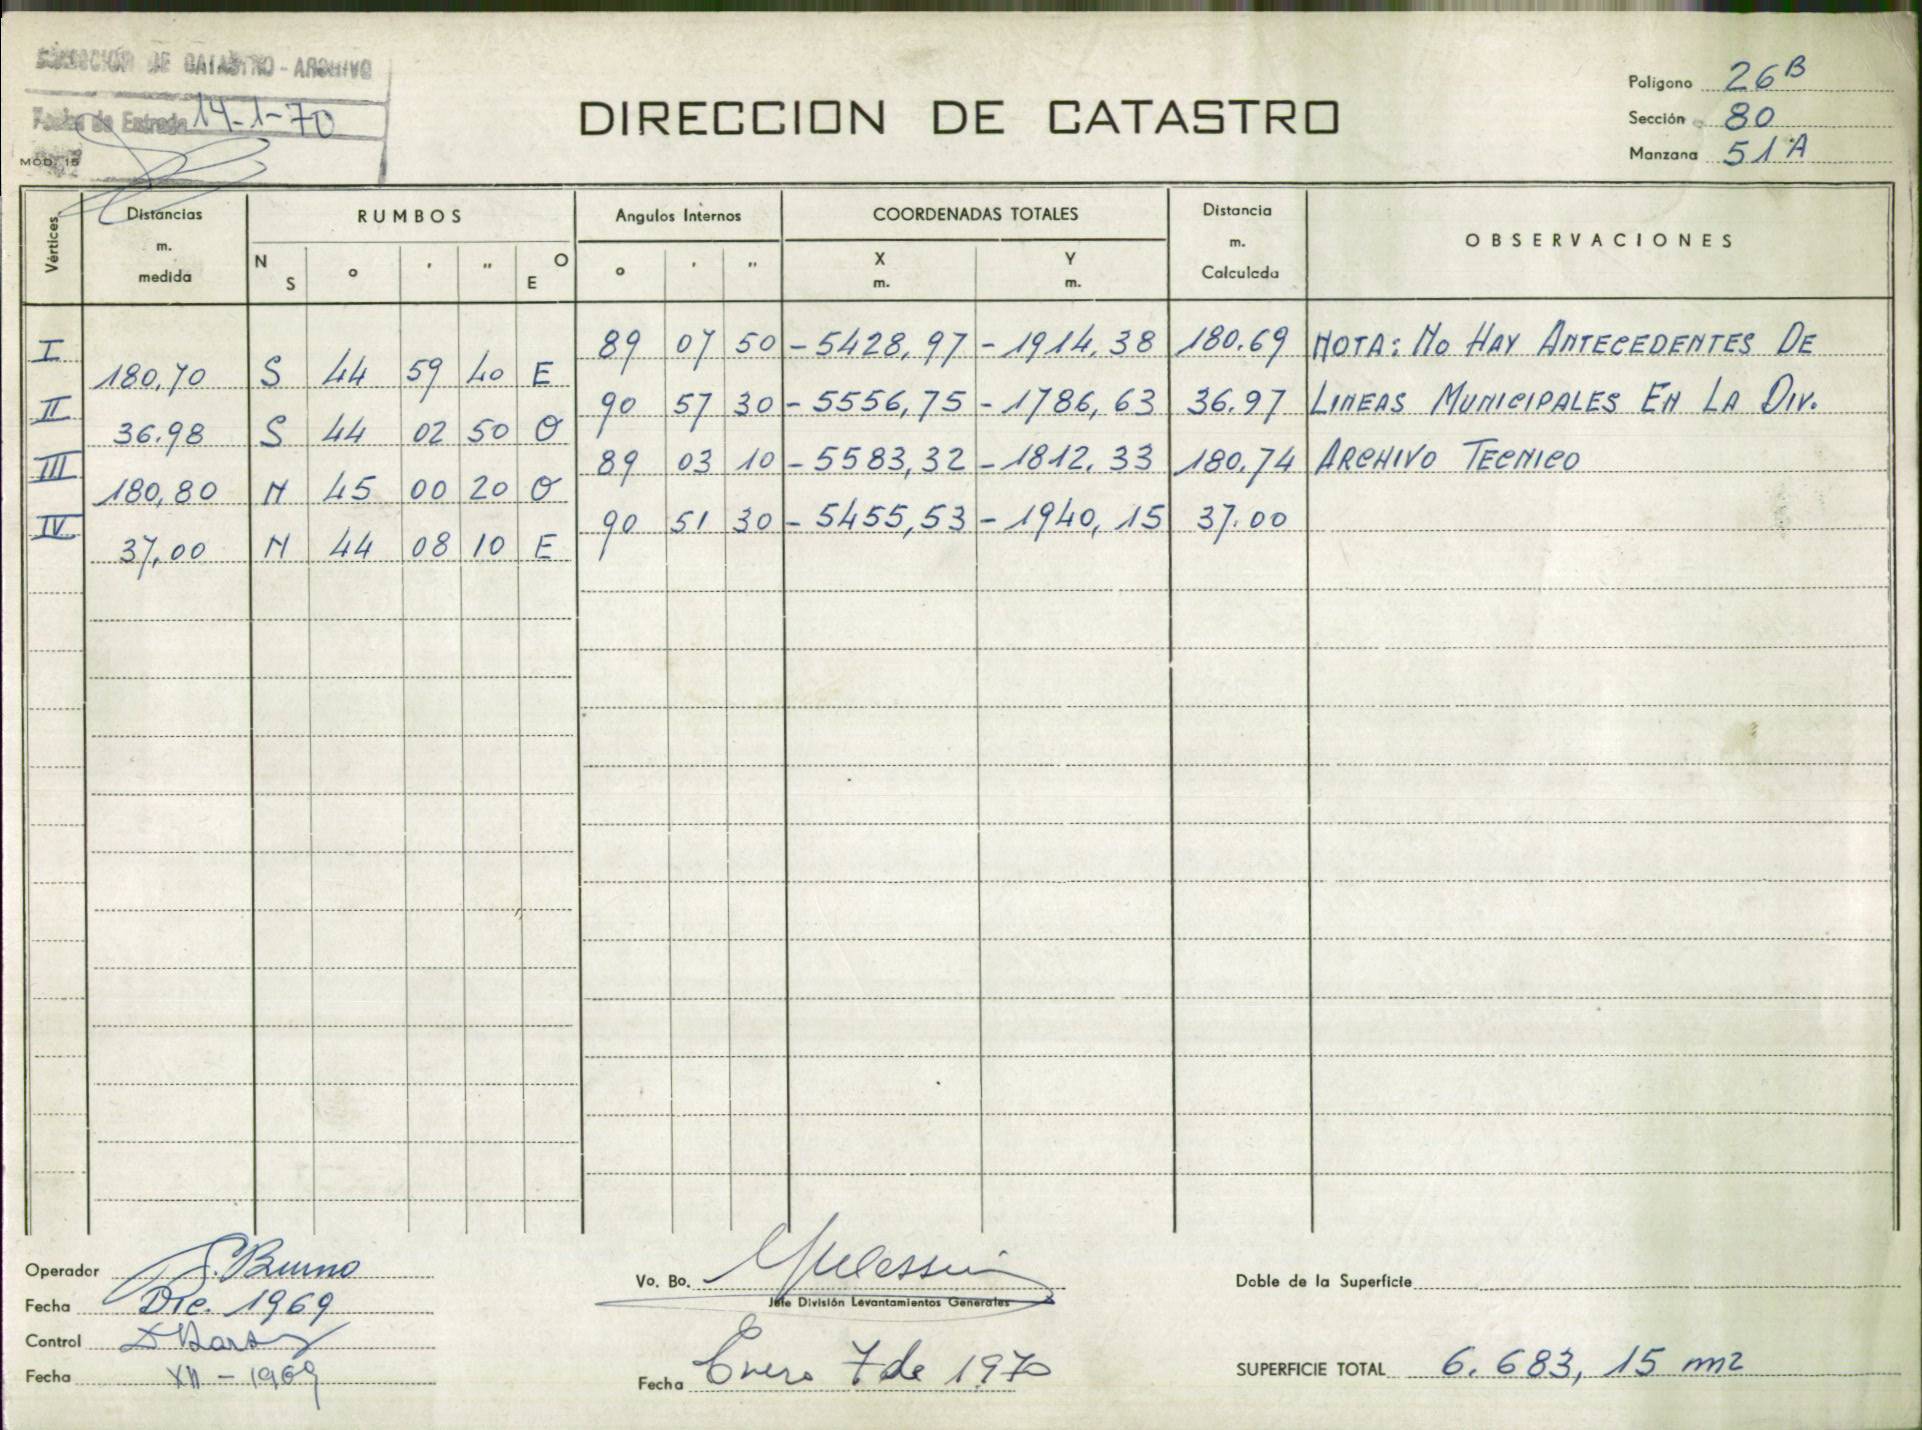 DIRECCION DE CATASTRO - ARCHIVO
Fecha de Entrada 14-1-70
MOD. 15
DIRECCION DE CATASTRO
Polígono 26B
Sección 80
Manzana 51A
Vértices Distancias m. medida RUMBOS Angulos Internos COORDENADAS TOTALES Distancia m. Calculada OBSERVACIONES
N S o ' " O E o ' " X m. Y m.
I 89 07 50 -5428,97 -1914,38 180.69 NOTA: No HAY ANTECEDENTES DE
180,70 S 44 59 40 E
II 90 57 30 -5556,75 -1786,63 36.97 LINEAS MUNICIPALES EN LA DIV.
36.98 S 44 02 50 O
III 89 03 10 -5583,32 -1812,33 180.74 ARCHIVO TECNICO
180,80 N 45 00 20 O
IV 90 51 30 -5455,53 -1940,15 37.00
37,00 N 44 08 10 E
Operador Bruno
Fecha Dic. 1969
Control
Fecha XII-1969
Vo. Bo.
Jefe División Levantamientos Generales
Fecha Enero 7 de 1970
Doble de la Superficie
SUPERFICIE TOTAL 6.683,15 m2